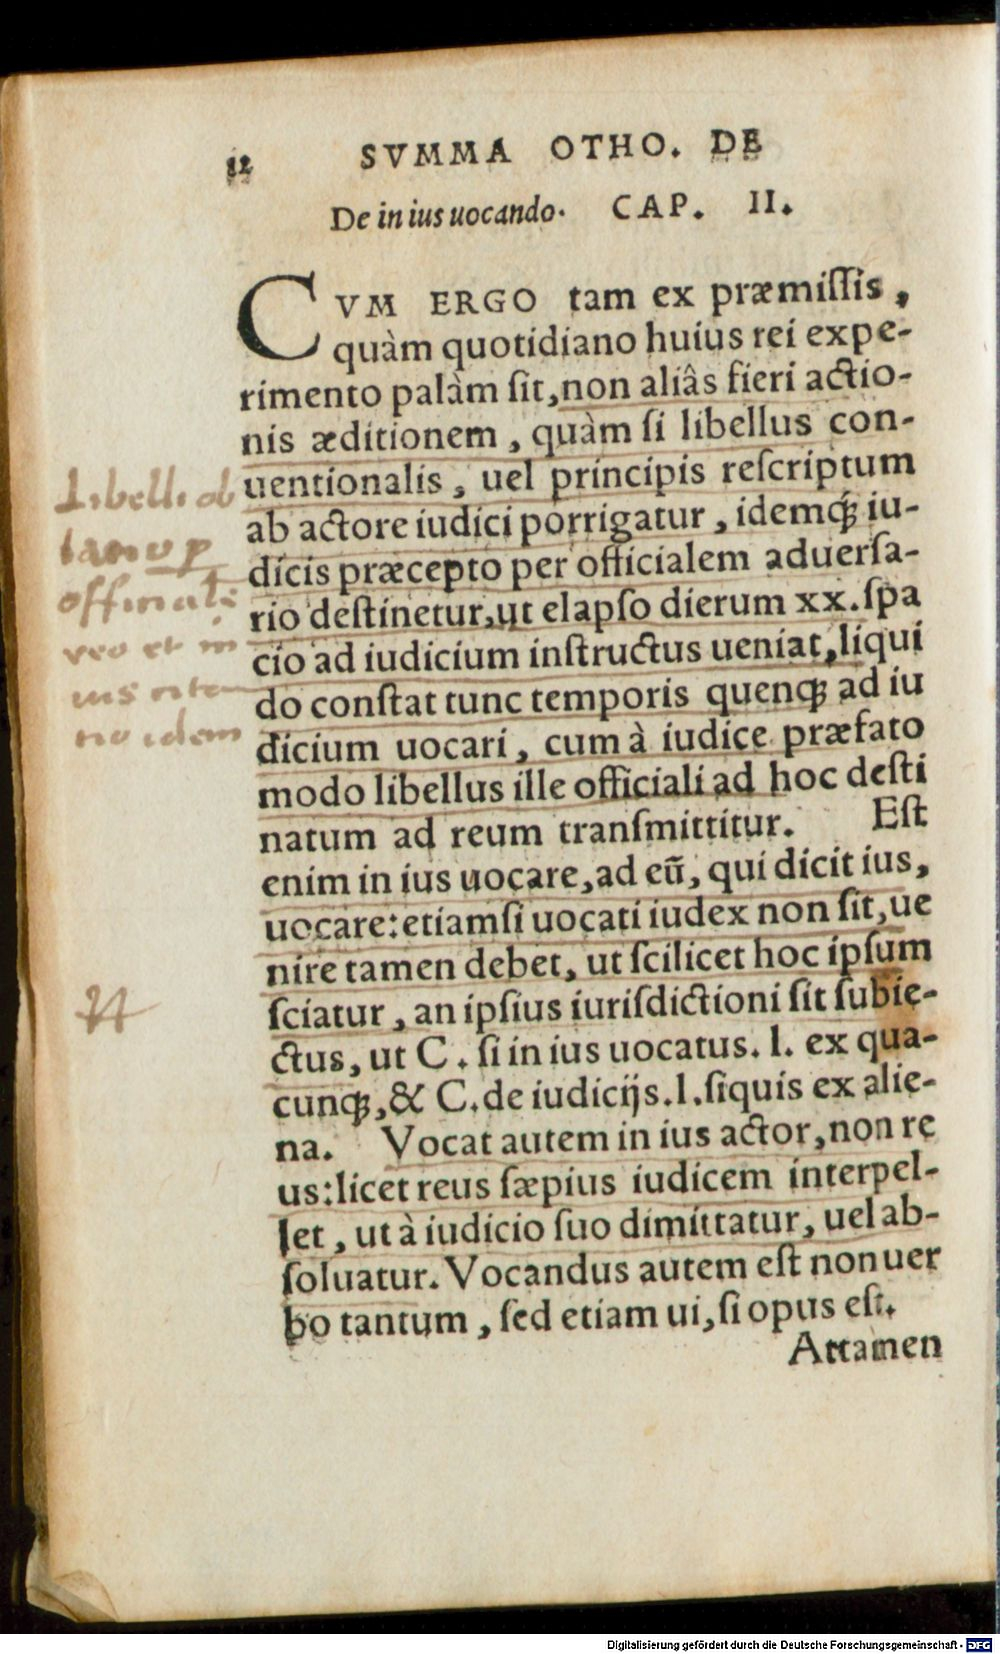 12 SVMMA OTHO. DE
De in ius uocando. CAP. II.
CVM ERGO tam ex præmissis,
quàm quotidiano huius rei expe-
rimento palàm sit, non aliâs fieri actio-
nis æditionem, quàm si libellus con-
uentionalis, uel principis rescriptum
ab actore iudici porrigatur, idemq́; iu-
dicis præcepto per officialem aduersa-
rio destinetur, ut elapso dierum xx. spa
cio ad iudicium instructus ueniat, liqui
do constat tunc temporis quenq; ad iu
dicium uocari, cum à iudice præfato
modo libellus ille officiali ad hoc desti
natum ad reum transmittitur. Est
enim in ius uocare, ad eũ, qui dicit ius,
uocare: etiamsi uocati iudex non sit, ue
nire tamen debet, ut scilicet hoc ipsum
sciatur, an ipsius iurisdictioni sit subie-
ctus, ut C. si in ius uocatus. l. ex qua-
cunq;, & C. de iudicijs. l. siquis ex alie-
na. Vocat autem in ius actor, non re
us: licet reus sæpius iudicem interpel-
let, ut à iudicio suo dimittatur, uel ab-
soluatur. Vocandus autem est non uer
bo tantum, sed etiam ui, si opus est.
Attamen
Libelli ob
officiale
et in
ius
idem
Digitalisierung gefördert durch die Deutsche Forschungsgemeinschaft - DFG